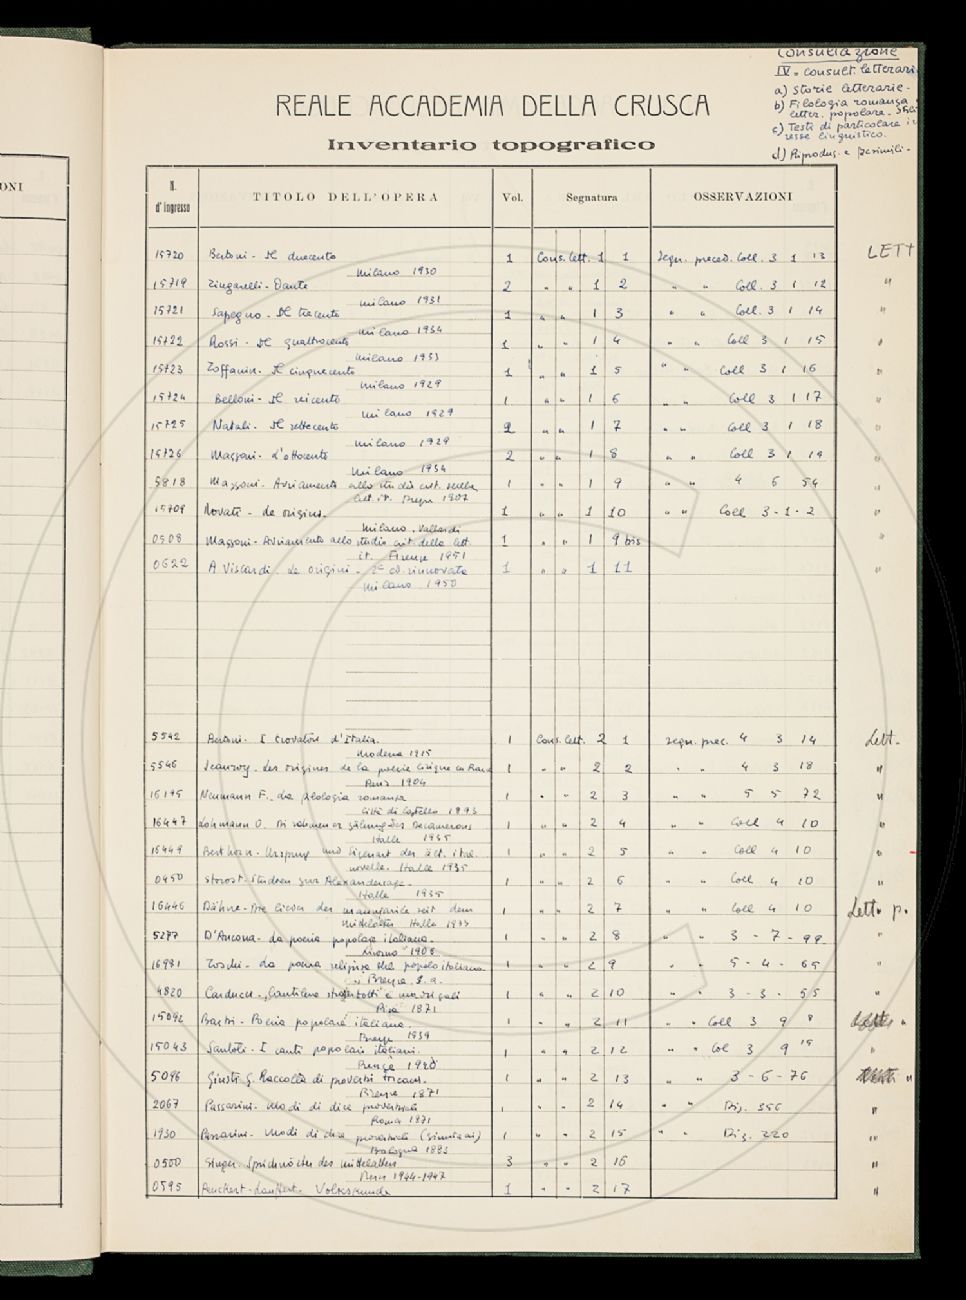 Consultazione
IV. consult. letteraria
a) Storie letterarie.
b) Filologia romanza
letter. popolare.
c) Testi di particolare
resse linguistico.
d) Riproduz. e facsimili.
REALE ACCADEMIA DELLA CRUSCA
Inventario topografico
ONI
N. d'ingresso TITOLO DELL'OPERA Vol. Segnatura OSSERVAZIONI
15720 Bertoni - Il duecento 1 Cons. lett. 1 1 Segn. preced. Coll. 3 1 13 LETT
Milano 1930
15719 Zingarelli - Dante 2 " " 1 2 " " Coll. 3 1 12 "
Milano 1931
15721 Sapegno - Il trecento 1 " " 1 3 " " Coll. 3 1 14 "
Milano 1934
15722 Rossi - Il quattrocento 1 " " 1 4 " " Coll 3 1 15 "
Milano 1933
15723 Toffanin - Il cinquecento 1 " " 1 5 " " Coll 3 1 16 "
Milano 1929
15724 Belloni - Il seicento 1 " " 1 6 " " Coll 3 1 17 "
Milano 1929
15725 Natali - Il settecento 2 " " 1 7 " " Coll 3 1 18 "
Milano 1929
15726 Mazzoni - L'ottocento 2 " " 1 8 " " Coll 3 1 19 "
Milano 1934
5818 Mazzoni - Avviamento allo studio crit. della 1 " " 1 9 " " 4 6 54 "
lett. it. 1907
15709 Novati - Le origini. 1 " " 1 10 " " Coll 3-1-2 "
Milano. Vallardi
0508 Mazzoni - Avviamento allo studio crit. della lett. 1 " " 1 9 bis "
it. Firenze 1951
0622 A Viscardi. Le origini - 2ª ed. rinnovata 1 " " 1 11 "
Milano 1950
5542 Bertoni - I trovatori d'Italia. 1 Cons. lett. 2 1 Segn. prec. 4 3 14 Lett.
Modena 1915
5546 Jeanroy - Les origines de la poésie lirique en 1 " " 2 2 " " 4 3 18 "
Paris 1904
16195 Neumann F. La filologia romanza 1 " " 2 3 " " 5 5 72 "
Città di Castello 1893
16447 Lohmann O. Di rahmenerzälung des Decamerons 1 " " 2 4 " " Coll 4 10 "
Halle 1935
Ursprung und Eigenart der ält. ital. 1 " " 2 5 " " Coll 4 10 "
novelle. Halle 1935
0450 Storost - Studien zur Alexandersage. 1 " " 2 6 " " Coll 4 10 "
Halle 1935
16446 Dähne - Die lieder der maumariée seit dem 1 " " 2 7 " " Coll 4 10 Lett. p.
Mittelalter Halle 1933
5277 D'Ancona - La poesia popolare italiana. 1 " " 2 8 " " 3-7-99 "
Livorno 1906
16981 Toschi - La poesia religiosa del popolo italiano 1 " " 2 9 " " 5-4-65 "
Firenze, s. a.
4820 Carducci - Cantilene strambotti e madrigali 1 " " 2 10 " " 3-3-55 "
Pisa 1871
15042 Barbi - Poesia popolare italiana. 1 " " 2 11 " " Coll 3 9 8 "
Firenze 1939
15043 Santoli - I canti popolari italiani. 1 " " 2 12 " " Col 3 9 15 "
Firenze 1940
5096 Giusti G. Raccolta di proverbi toscani. 1 " " 2 13 " " 3-6-76 "
Firenze 1871
2067 Passarini - Modi di dire proverbiali 1 " " 2 14 " " Diz. 356 "
Roma 1871
1930 Passarini - Modi di dire proverbiali 1 " " 2 15 " " Diz. 220 "
Bologna 1883
0500 Singer - Sprichwörter des mittelalters 3 " " 2 16 "
Bern 1944-1947
0595 Peuckert-Lauffert. Volkskunde 1 " " 2 17 "